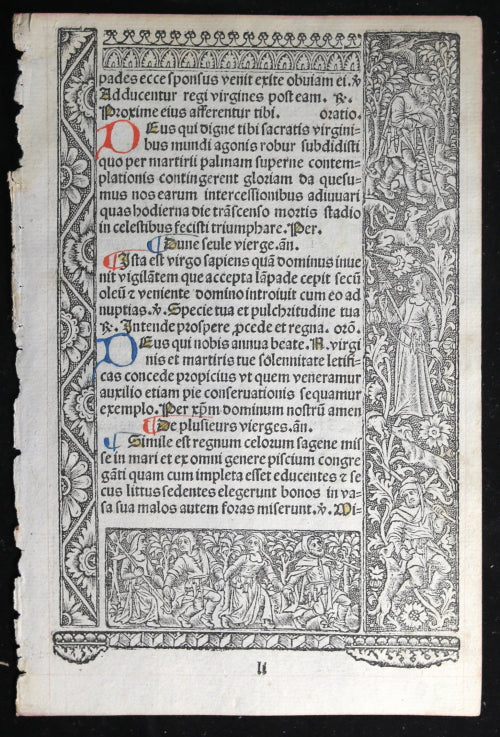 pades ecce sponsus venit exite obuiam ei. ꝟ
Adducentur regi virgines post eam. ℟.
Proxime eius afferentur tibi. oratio.
Deus qui digne tibi sacratis virgini-
bus mundi agonis robur subdidisti
quo per martirii palmam superne contem-
plationis contingerent gloriam da quesu-
mus nos earum intercessionibus adiuuari
quas hodierna die trãscenso mortis stadio
in celestibus fecisti triumphare. Per.
¶ Dune seule vierge. añ.
¶ Ista est virgo sapiens quã dominus inue
nit vigilãtem que accepta lãpade cepit secũ
oleũ ⁊ veniente domino introiuit cum eo ad
nuptias. ꝟ. Specie tua et pulchritudine tua
℟. Intende prospere ꝓcede et regna. orõ.
Deus qui nobis annua beate. N. virgi
nis et martiris tue solennitate letifi-
cas concede propicius vt quem veneramur
auxilio etiam pie conseruationis sequamur
exemplo. Per xp̃m dominum nostrũ amen
¶ De plusieurs vierges. añ.
¶ Simile est regnum celorum sagene mis
se in mari et ex omni genere piscium congre
gãti quam cum impleta esset educentes ⁊ se
cus littus sedentes elegerunt bonos in va-
sa sua malos autem foras miserunt. ꝟ. Di-
li